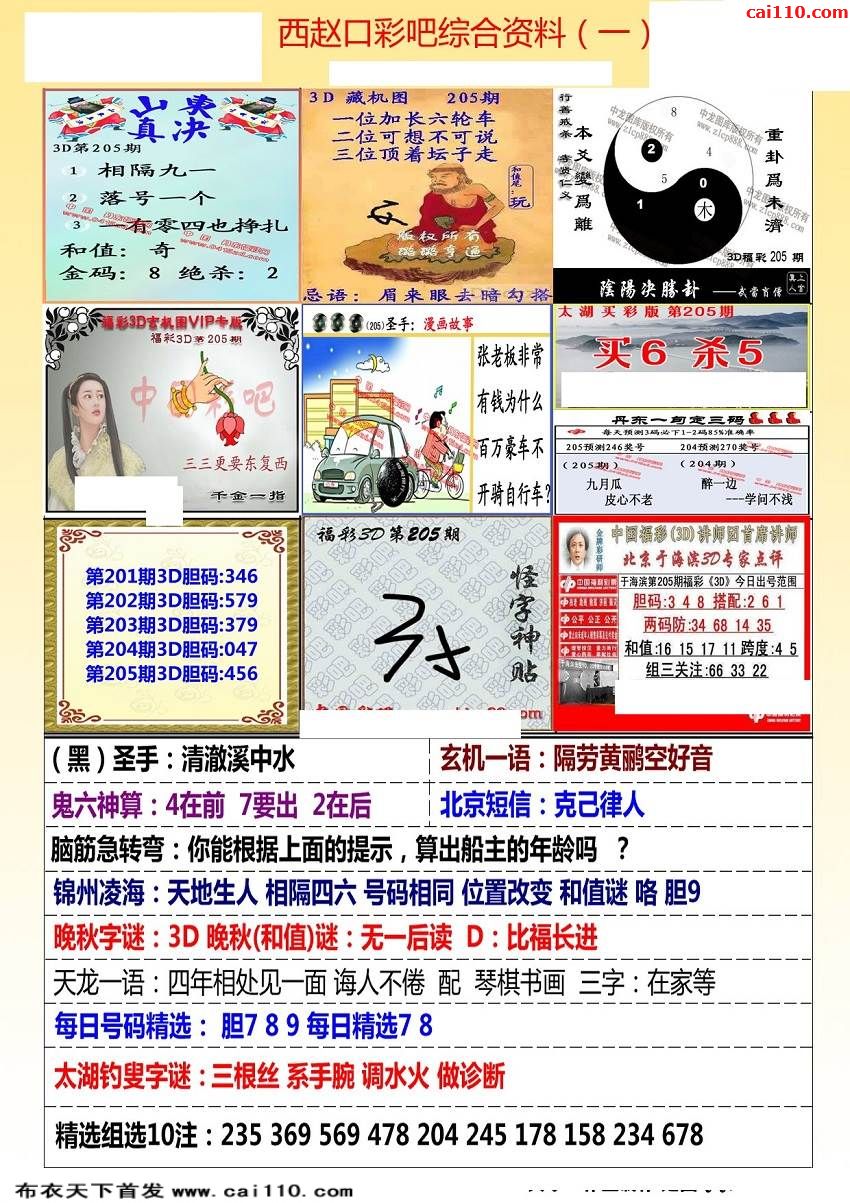 cai110.com
西赵口彩吧综合资料（一）
真决
3D第205期
1 相隔九一
2 落号一个
3 有零四也挣扎
和值：奇
金码：8 绝杀：2
3D 藏机图 205期
一位加长六轮车
二位可想不可说
三位顶着坛子走
和值尾：玩
版权所有
忌语：眉来眼去暗勾搭
本爻变为离
重卦为未济
8
2
4
5
0
1
木
中龙图库版权所有
www.zlcp888.com
3D福彩 205 期
陰陽决勝卦
福彩3D玄机图VIP专版
福彩3D第205期
中国彩吧
三三更要东复西
千金一指
(205)圣手：漫画故事
张老板非常
有钱为什么
百万豪车不
开骑自行车?
太湖买彩版 第205期
买6 杀5
丹东一句定三码
每天预测3码必下1-2码85%准确率
205预测246奖号 204预测270奖号
（205期） （204期）
九月瓜 醉一边
皮心不老 ---学问不浅
第201期3D胆码:346
第202期3D胆码:579
第203期3D胆码:379
第204期3D胆码:047
第205期3D胆码:456
福彩3D第205期
怪字神贴
金牌彩研师
中国福彩(3D)讲师团首席讲师
北京于海滨3D专家点评
中国福利彩票
于海滨第205期福彩《3D》今日出号范围
胆码:3 4 8 搭配:2 6 1
两码防:34 68 14 35
和值:16 15 17 11 跨度:4 5
组三关注:66 33 22
公平 公正 公开
（黑）圣手：清澈溪中水
玄机一语：隔劳黄鹂空好音
鬼六神算：4在前 7要出 2在后
北京短信：克己律人
脑筋急转弯：你能根据上面的提示，算出船主的年龄吗 ？
锦州凌海：天地生人 相隔四六 号码相同 位置改变 和值谜 咯 胆9
晚秋字谜：3D 晚秋(和值)谜：无一后读 D：比福长进
天龙一语：四年相处见一面 诲人不倦 配 琴棋书画 三字：在家等
每日号码精选： 胆7 8 9 每日精选7 8
太湖钓叟字谜：三根丝 系手腕 调水火 做诊断
精选组选10注：235 369 569 478 204 245 178 158 234 678
布衣天下首发 www.cai110.com